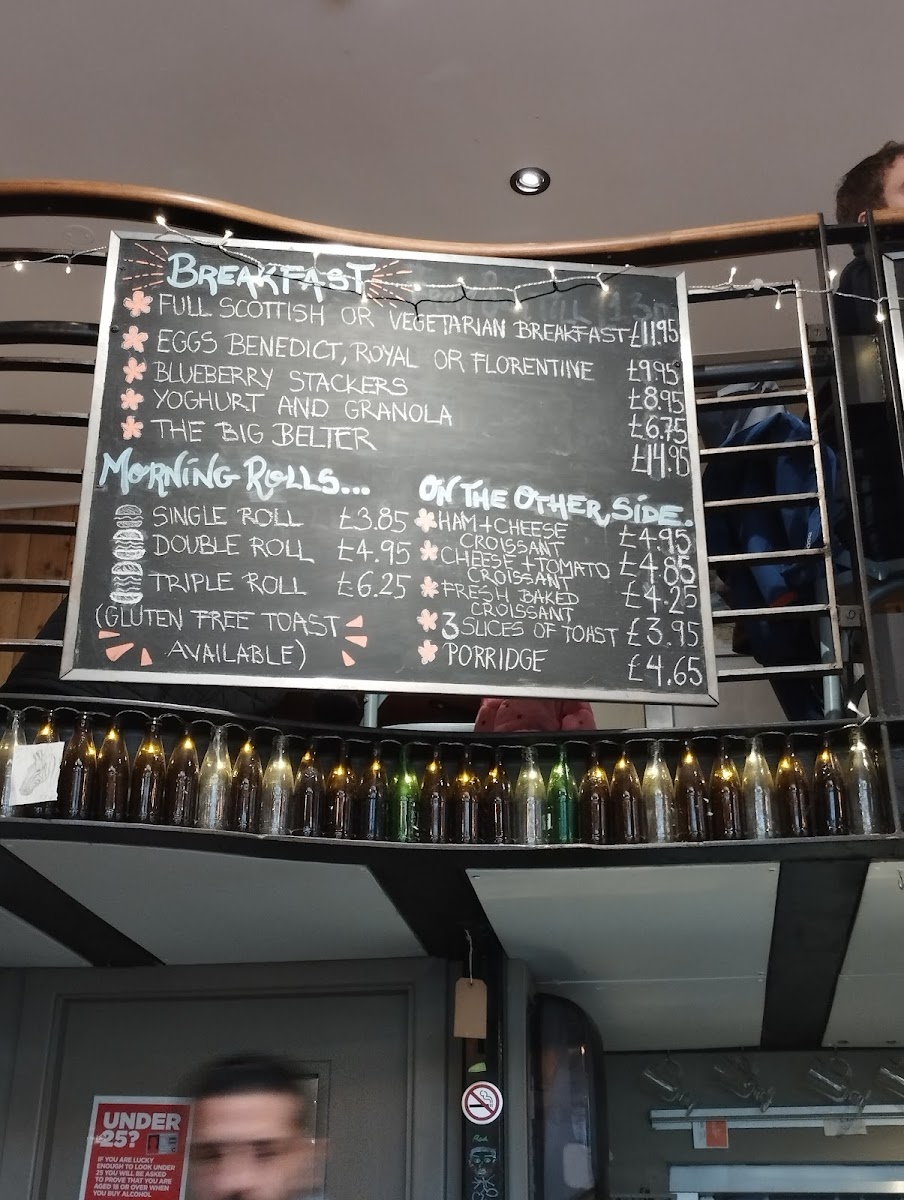 BREAKFAST
FULL SCOTTISH OR VEGETARIAN BREAKFAST £11.95
EGGS BENEDICT, ROYAL OR FLORENTINE £9.95
BLUEBERRY STACKERS £8.95
YOGHURT AND GRANOLA £6.75
THE BIG BELTER £14.95
MORNING ROLLS...
SINGLE ROLL £3.85
DOUBLE ROLL £4.95
TRIPLE ROLL £6.25
(GLUTEN FREE TOAST
AVAILABLE)
ON THE OTHER SIDE.
HAM + CHEESE
CROISSANT £4.95
CHEESE + TOMATO
CROISSANT £4.85
FRESH BAKED
CROISSANT £4.25
3 SLICES OF TOAST £3.95
PORRIDGE £4.65
UNDER
25?
IF YOU ARE LUCKY
ENOUGH TO LOOK UNDER
25 YOU WILL BE ASKED
TO PROVE THAT YOU ARE
AGED 18 OR OVER WHEN
YOU BUY ALCOHOL